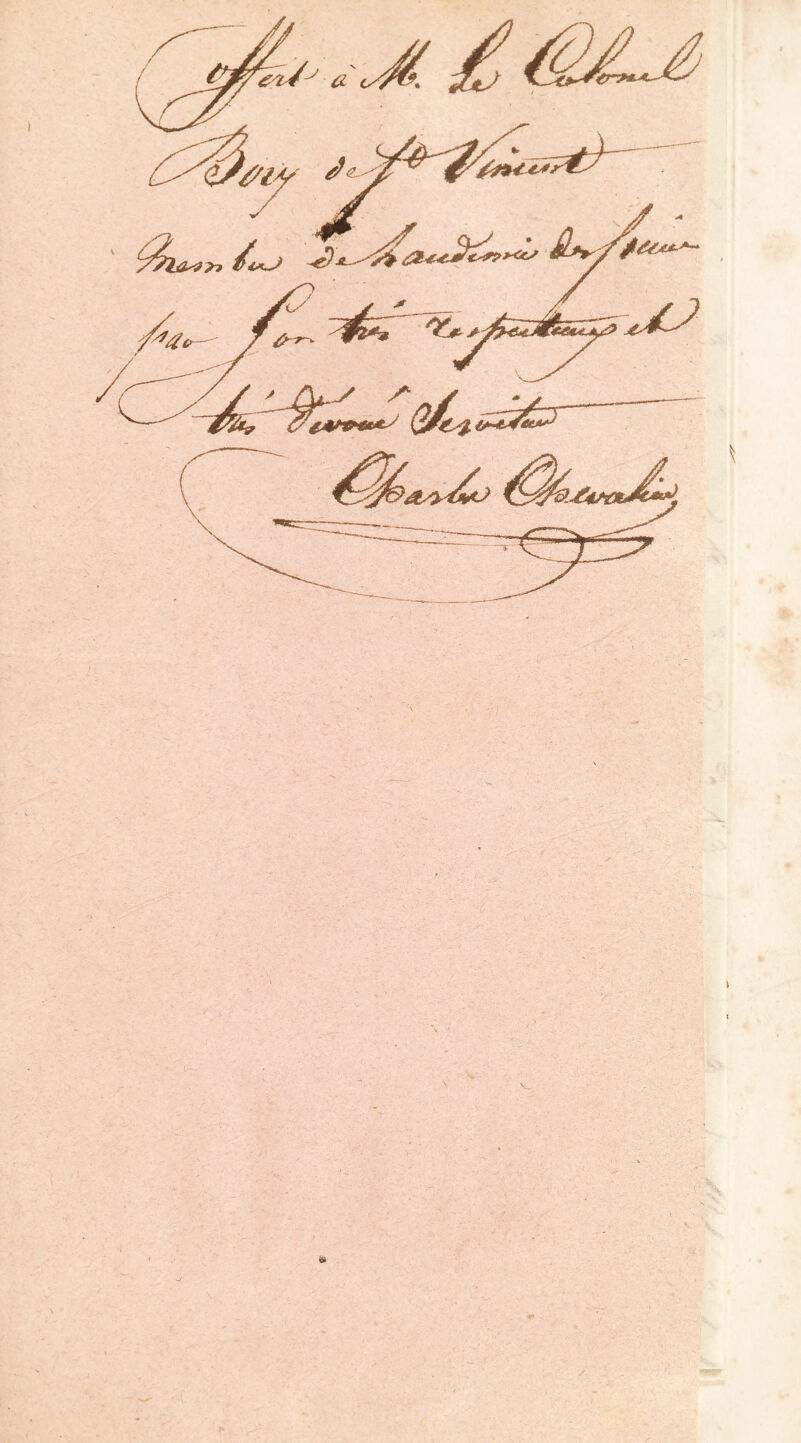 offert à M. Le Colonel
Bory de St Vincent
Membre de L'académie des Sciences
par Son très respectueux et
très dévoué Serviteur
Charles Chevalier